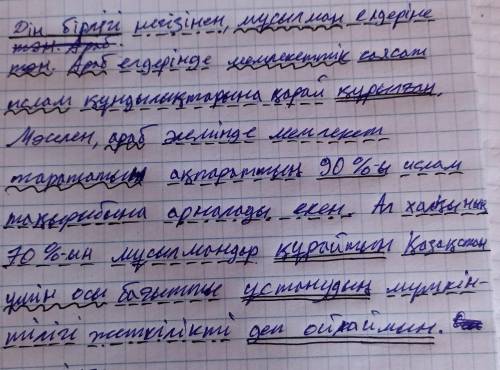 Дін бірлігі негізінен, мусылман елдеріне
тән. Араб
тән. Араб елдерінде мемлекеттік саясат
ислам құндылықтарына қарай құрылған.
Мәселен, араб желінде мемлекет
тарататын ақпараттың 90%-ы ислам
тақырыбына арналады екен. Ал халқының
70%-ын мұсылмандар құрайтын Қазақстан
үшін осы бағытты ұстанудың мүмкін-
тілігі жеткілікті деп ойлаймын.